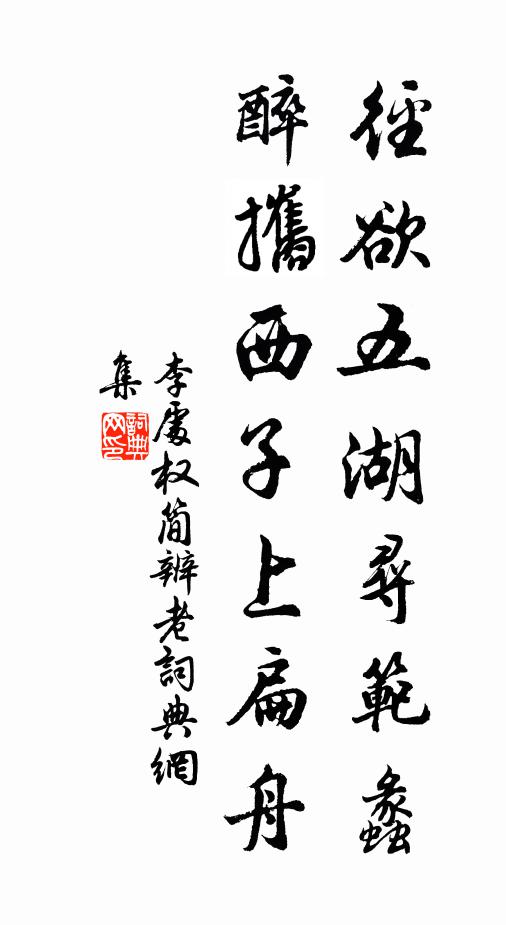 徑欲五湖尋範蠡
醉攜西子上扁舟
李處权简辨老詞典網
集
詞典網印